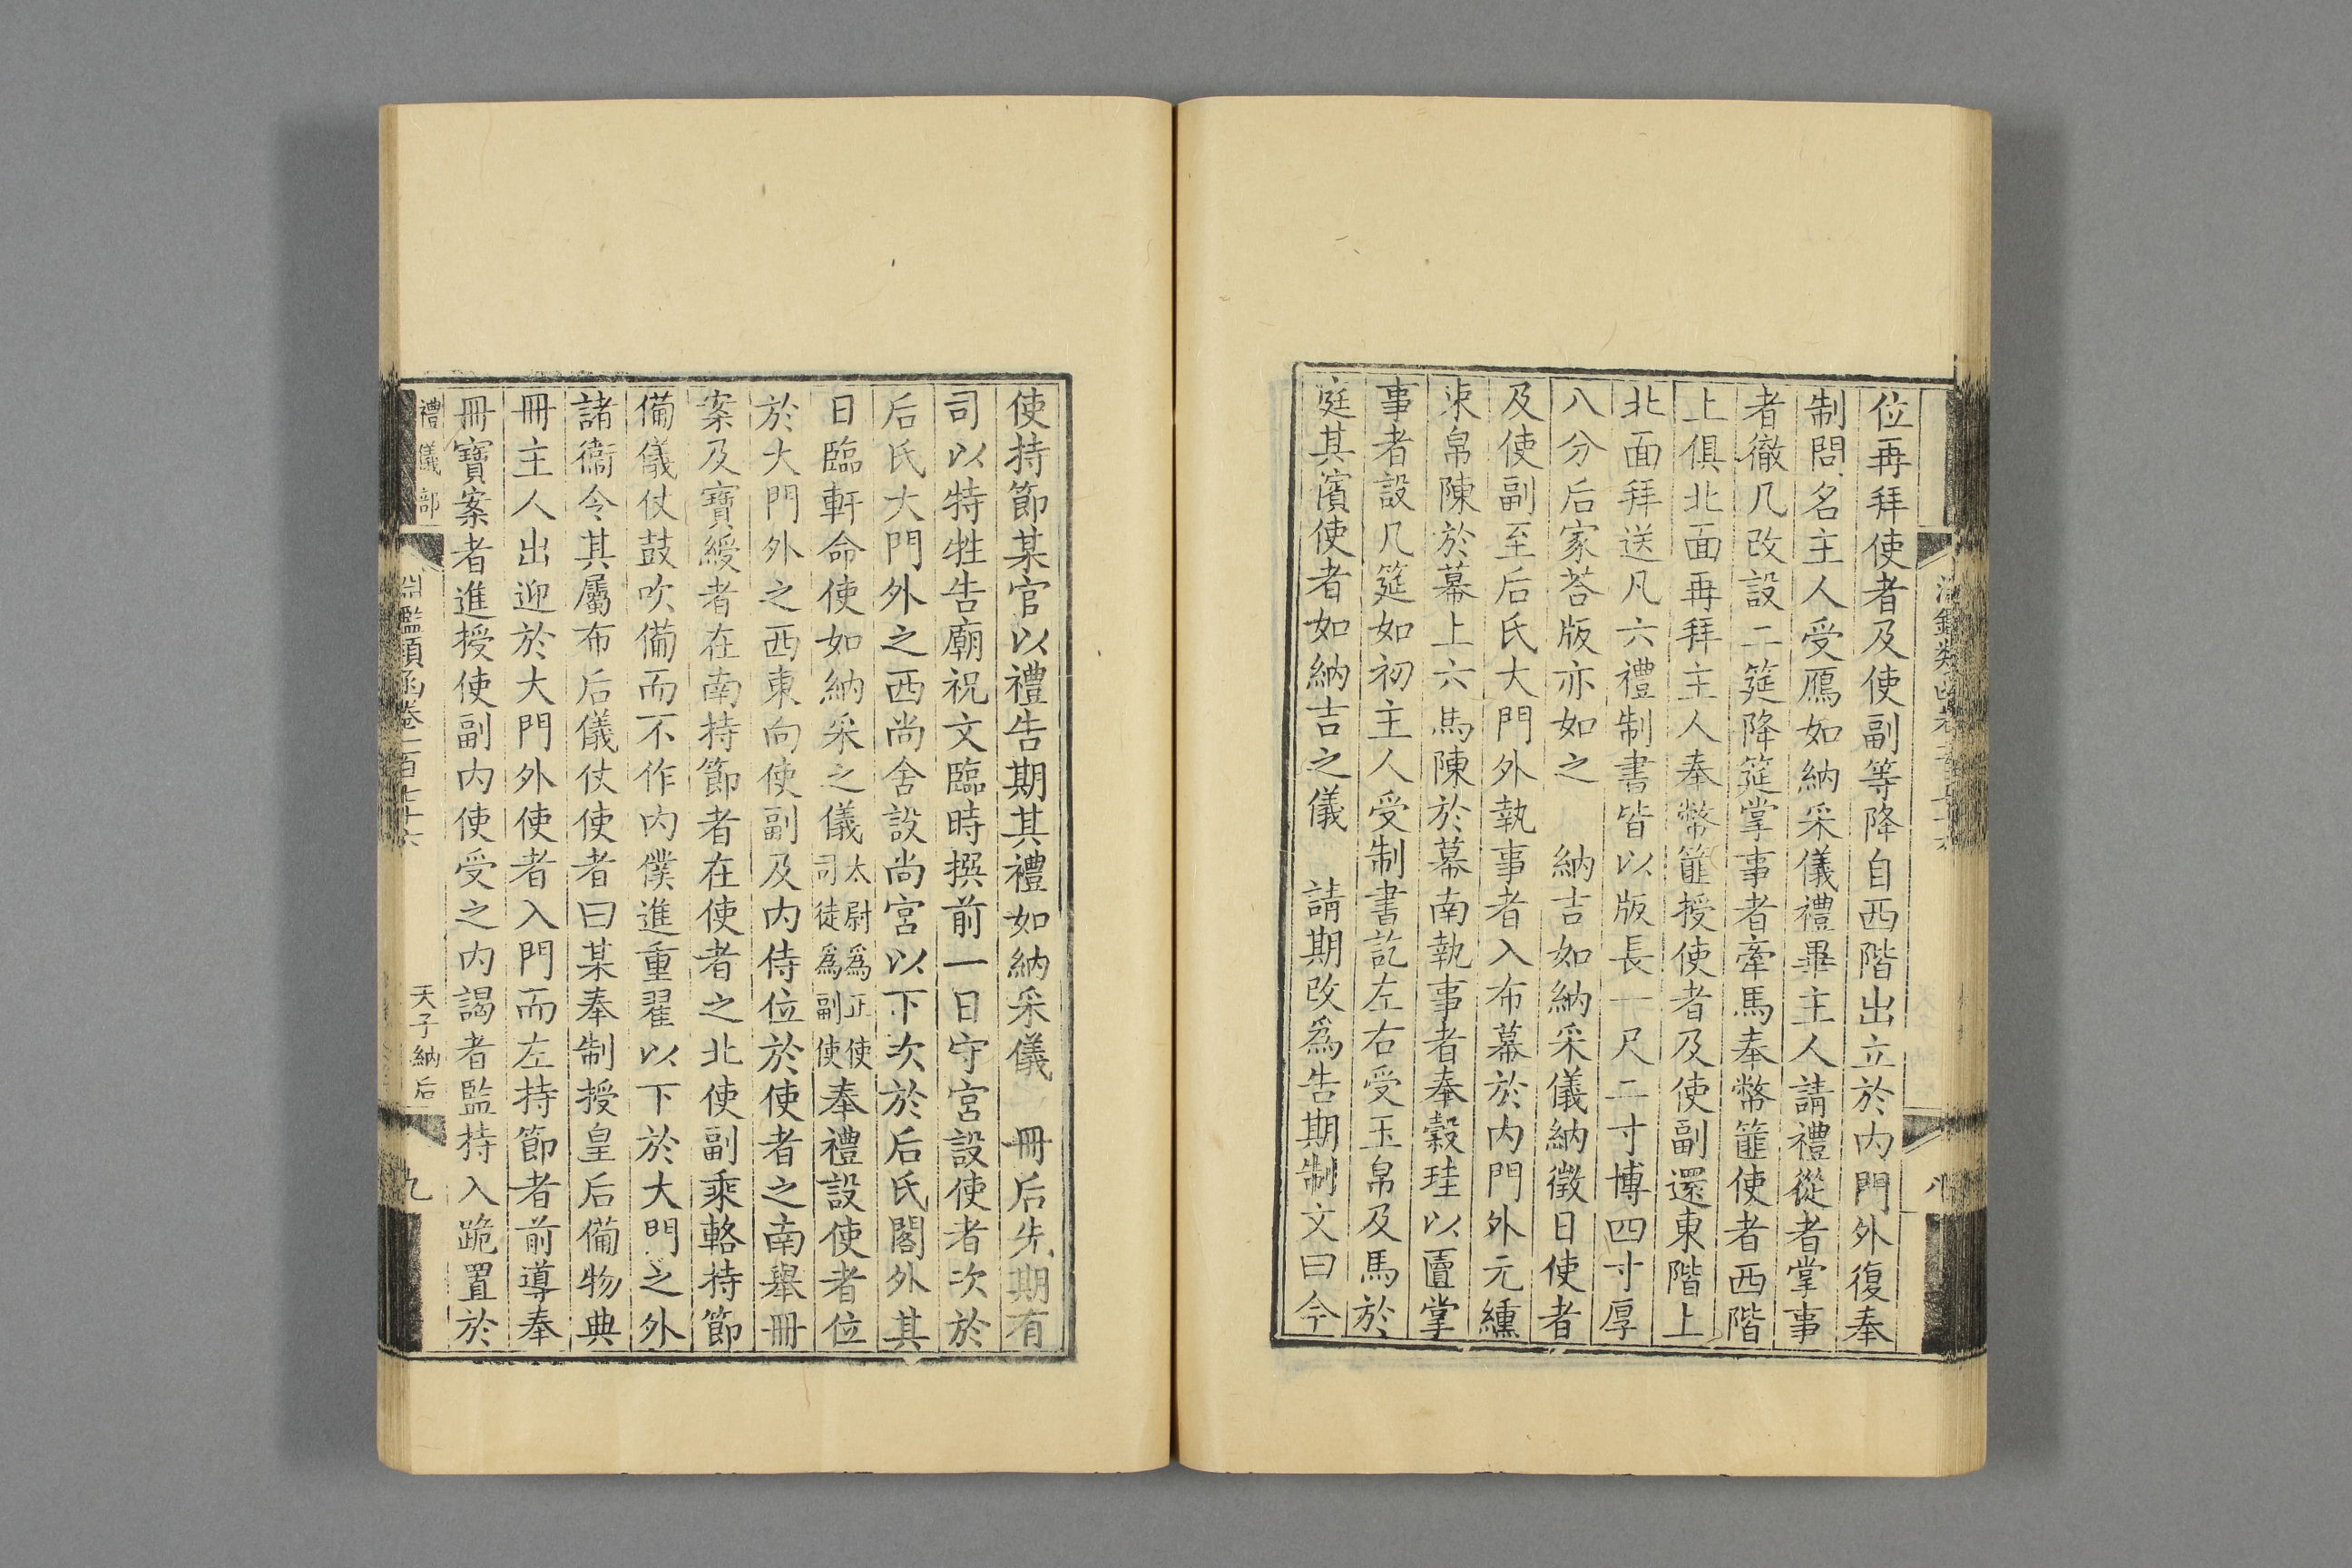 位再拜使者及使副等降自西階出立於内門外復奉
制問名主人受鴈如納采儀禮畢主人請禮從者掌事
者徹几改設二筵降筵掌事者牽馬奉幣篚使者西階
上俱北面再拜主人奉幣篚授使者及使副還東階上
北面拜送凡六禮制書皆以版長一尺二寸博四寸厚
八分后家荅版亦如之　納吉如納采儀納徵日使者
及使副至后氏大門外執事者入布幕於内門外元纁
束帛陳於幕上六馬陳於幕南執事者奉穀珪以匵掌
事者設几筵如初主人受制書訖左右受玉帛及馬於
庭其濱使者如納吉之儀　請期改爲告期制文曰今
使持節某官以禮告期其禮如納采儀　冊后先期有
司以特牲告廟祝文臨時撰前一日守宮設使者次於
后氏大門外之西尚舍設尚宮以下次於后氏閤外其
日臨軒命使如納采之儀太尉爲正使司徒爲副使奉禮設使者位
於大門外之西東向使副及内侍位於使者之南舉冊
案及寶綬者在南持節者在使者之北使副乘輅持節
備儀仗鼓吹備而不作内僕進重翟以下於大門之外
諸衞令其屬布后儀仗使者曰某奉制授皇后備物典
冊主人出迎於大門外使者入門而左持節者前導奉
冊寶案者進授使副内使受之内謁者監持入跪置於
禮儀部
淵鑑類函卷一百七十六
天子納后
九